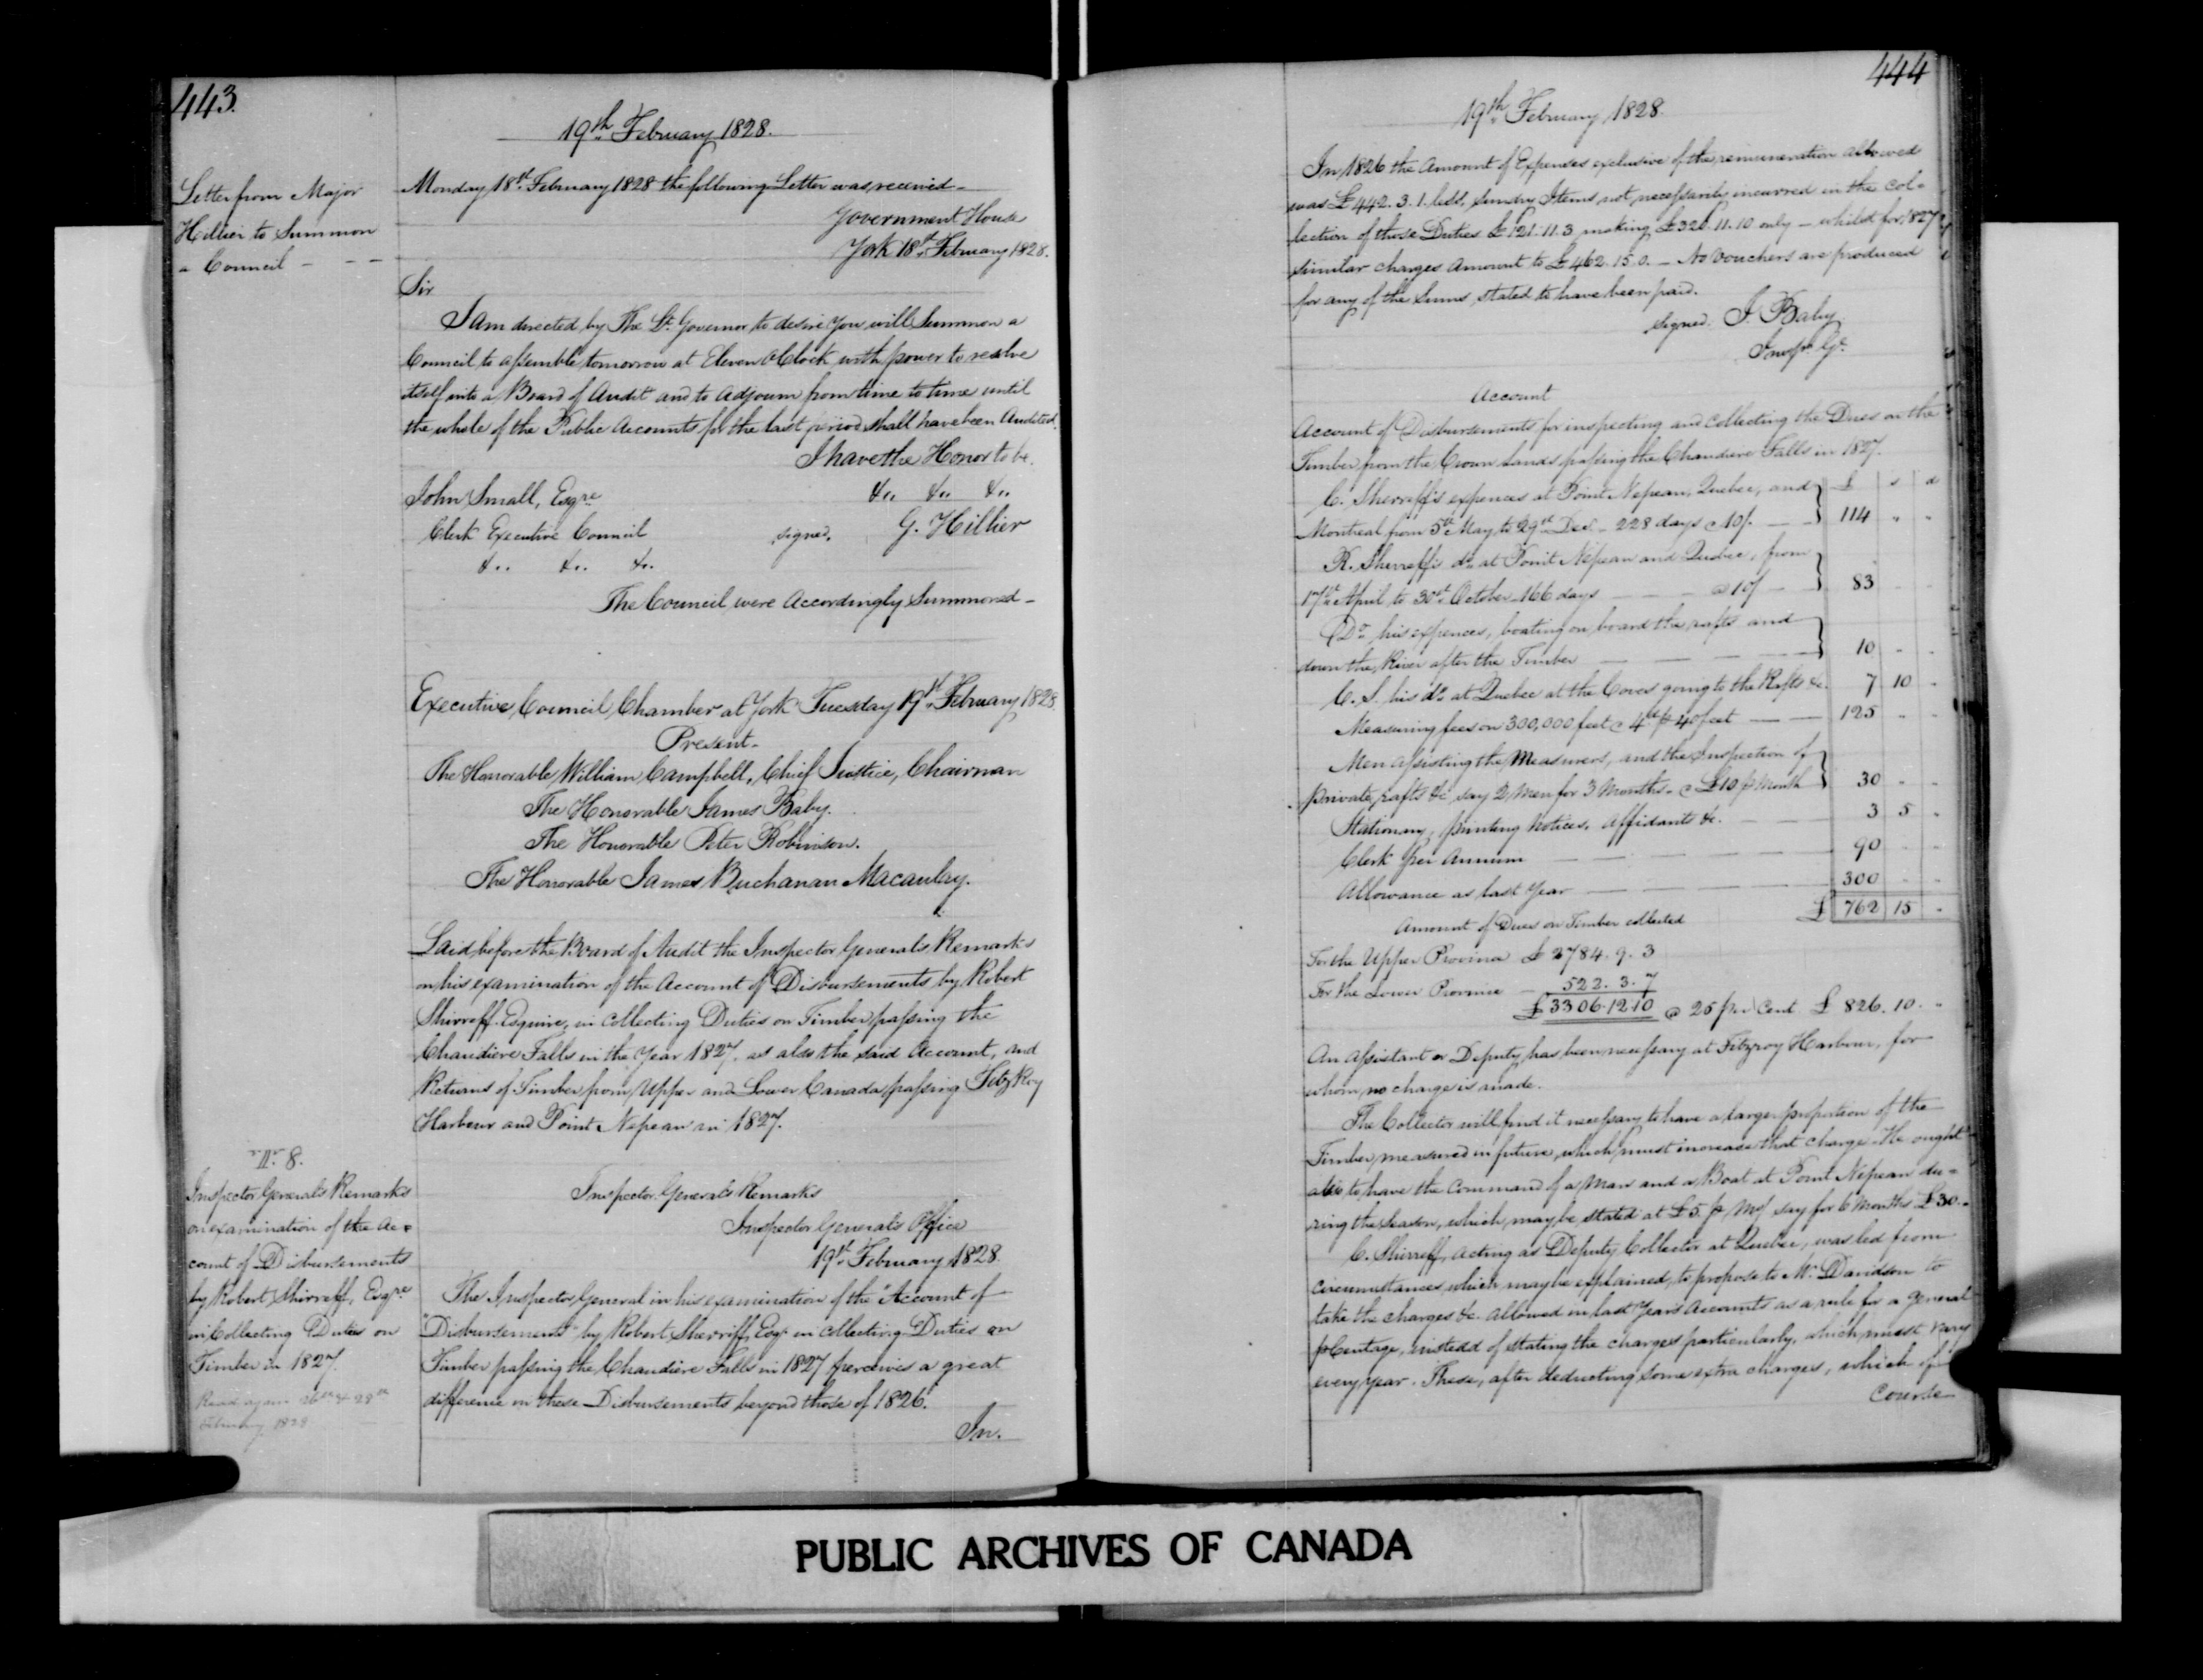 443.
19th February 1828.
Letter from Major
Hillier to Summon
a Council - - -
Monday 18th February 1828 the following Letter was received -
Government House
York 18th February 1828.
Sir
I am directed by The Lt. Governor to desire you will Summon a
Council to assemble tomorrow at Eleven OClock with power to resolve
itself into a Board of Audit and to Adjourn from time to time until
the whole of the Public Accounts for the last period shall have been Audited.
I have the Honor to be.
&.. &.. &..
John Small, Esqre
Clerk Executive Council
&.. &.. &..
signed, G. Hillier
The Council were Accordingly Summoned -
Executive Council Chamber at York Tuesday 19th February 1828.
Present -
The Honorable William Campbell, Chief Justice, Chairman
The Honorable James Baby.
The Honorable Peter Robinson.
The Honorable James Buchanan Macaulay.
Laid before the Board of Audit the Inspector Generals Remarks
on his examination of the Account of Disbursements by Robert
Shirreff Esquire, in collecting Duties on Timber passing the
Chaudiere Falls in the Year 1827. as also the said Account, and
Returns of Timber from Upper and Lower Canada passing Fitz Roy
Harbour and Point Nepean in 1827.
8.
Inspector Generals Remarks
on examination of the Ac=
count of Disbursements
by Robert Shirreff, Esqre
in Collecting Duties on
Timber in 1827.
Read again 26th & 28th
February 1828
Inspector Generals Remarks
Inspector Generals Office
19th February 1828.
The Inspector General in his examination of the "Account of
"Disbursements" by Robert Sherriff, Esqr in collecting Duties on
Timber passing the Chaudiere Falls in 1827 perceives a great
difference in these Disbursements beyond those of 1826.
In.
444
19th February 1828.
In 1826 the Amount of Expenses exclusive of the remuneration allowed
was £442. 3. 1. less, sundry Items not necessarily incurred in the col=
lection of those Duties £121. 11. 3 making £320. 11. 10 only - whilst for 1827
similar charges Amount to £462. 15. 0. - No Vouchers are produced
for any of the Sums stated to have been paid.
signed. J. Baby.
Inspr. Gl.
Account
Account of Disbursements for inspecting and collecting the Dues on the
Timber from the Crown Lands passing the Chaudiere Falls in 1827.
£ s d
C. Sherreff's expences at Point Nepean, Quebec, and
Montreal from 5th May to 29th Decr - 228 days @ 10/. - 114 " "
R. Sherreff's do at Point Nepean and Quebec, from
17th April to 30th October - 166 days - - - @ 10/ - 83 - -
Do his expences, boating on board the rafts and
down the River after the Timber - - - 10 - -
C. S. his do at Quebec at the Coves going to the Rafts &c. 7 10 "
Measuring fees on 300,000 feet @ 4d p 40 feet - 125 - -
Men assisting the Measurers, and the Inspection of
private rafts &c say 2 Men for 3 Months - @ £10 p Month 30 - -
Stationary, printing Notices, Affidavits &c. - 3 5 "
Clerk per Annum - - - 90 - -
Allowance as last Year - - - 300 - -
£ 762 15 "
Amount of Dues on Timber collected
For the Upper Province £2784. 9. 3
For the Lower Province - 522. 3. 7
£3306.12.10 @ 25 pr Cent £826. 10. "
An Assistant or Deputy has been necessary at Fitzroy Harbour, for
whom no charge is made.
The Collector will find it necessary to have a larger proportion of the
Timber measured in future, which must increase that charge. He ought
also to have the Command of a Man and a Boat at Point Nepean du=
ring the Season, which may be stated at £5. p Mo. say for 6 Months £30. -
C. Shirreff, Acting as Deputy Collector at Quebec, was led from
circumstances which may be explained, to propose to Mr. Davidson to
take the charges &c. allowed in last Years Accounts as a rule for a general
pCentage, instead of stating the charges particularly, which must vary
every year. These, after deducting some extra charges, which of
Course
PUBLIC ARCHIVES OF CANADA